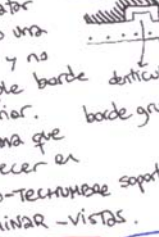 una
y no
ble borde
dentícu
borde gru
ma que
ecer en
O-TECHUMBRE soport
MINAR - VISTAS.